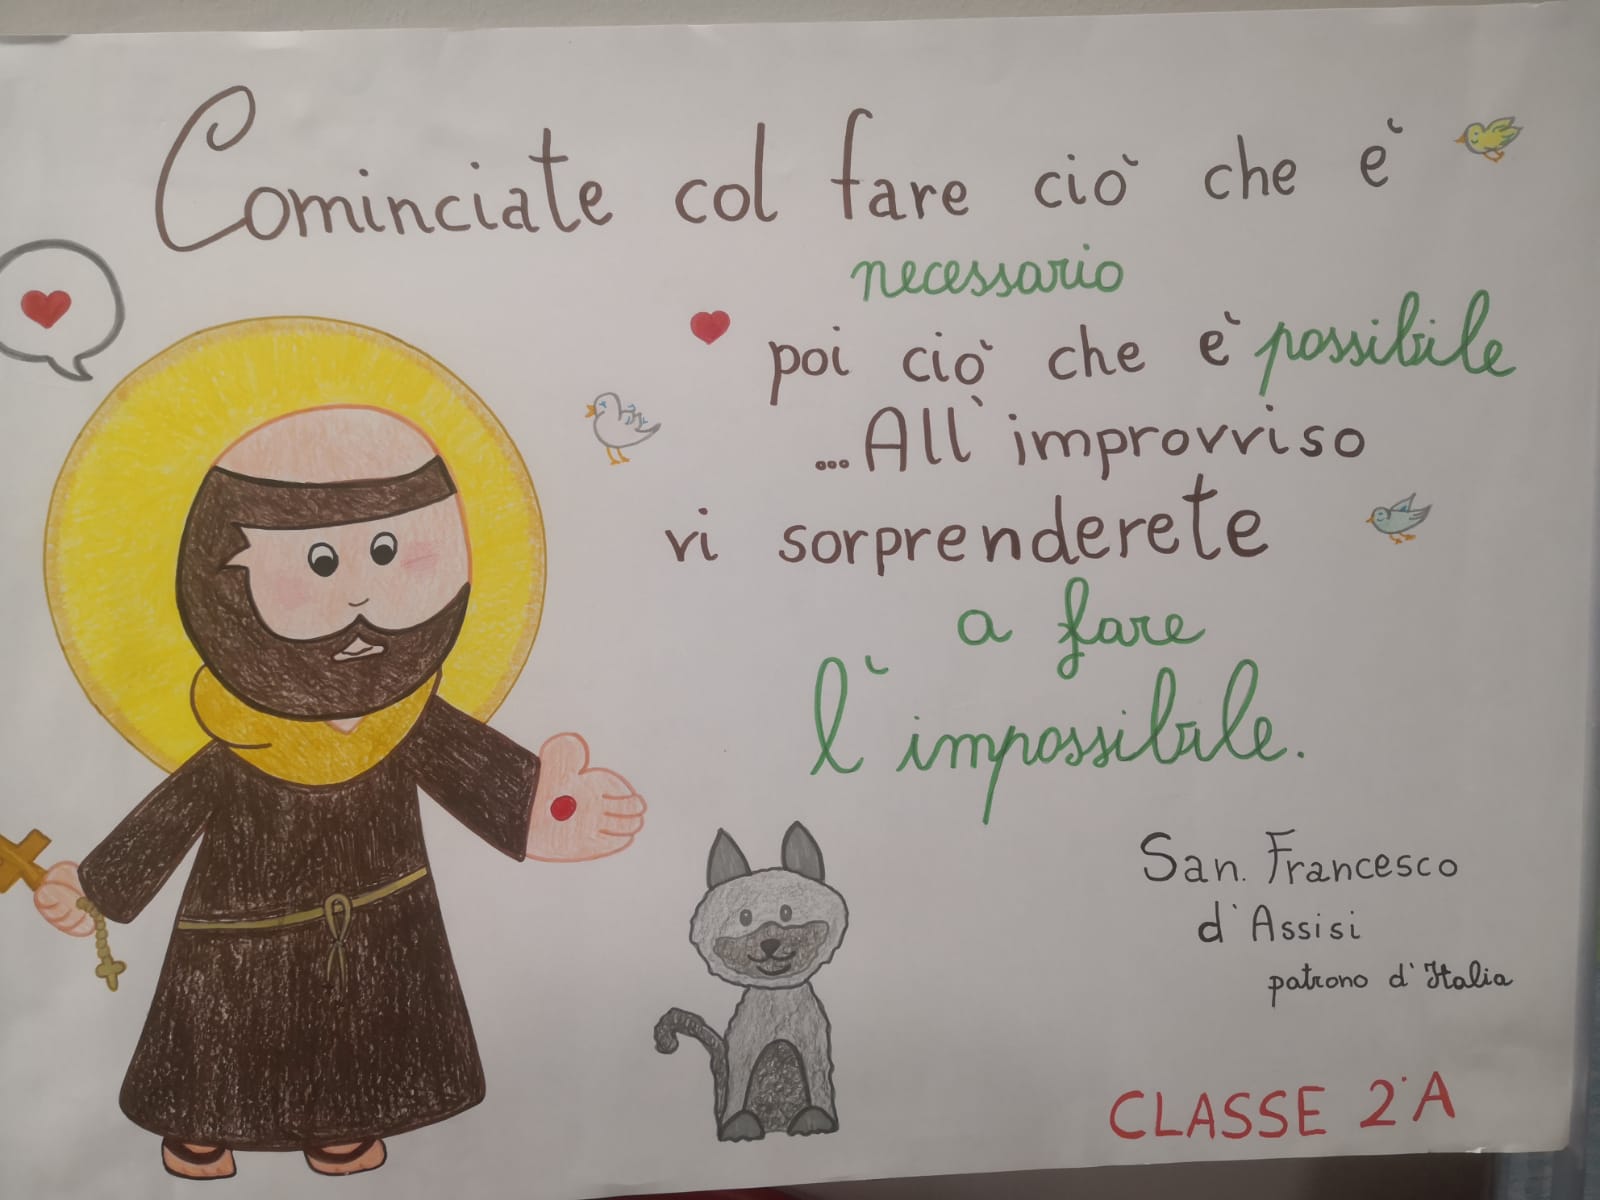 Cominciate col fare ciò che è
necessario
poi ciò che è possibile
...All'improvviso
vi sorprenderete
a fare
l'impossibile.
San. Francesco
d'Assisi
patrono d'Italia
CLASSE 2ªA